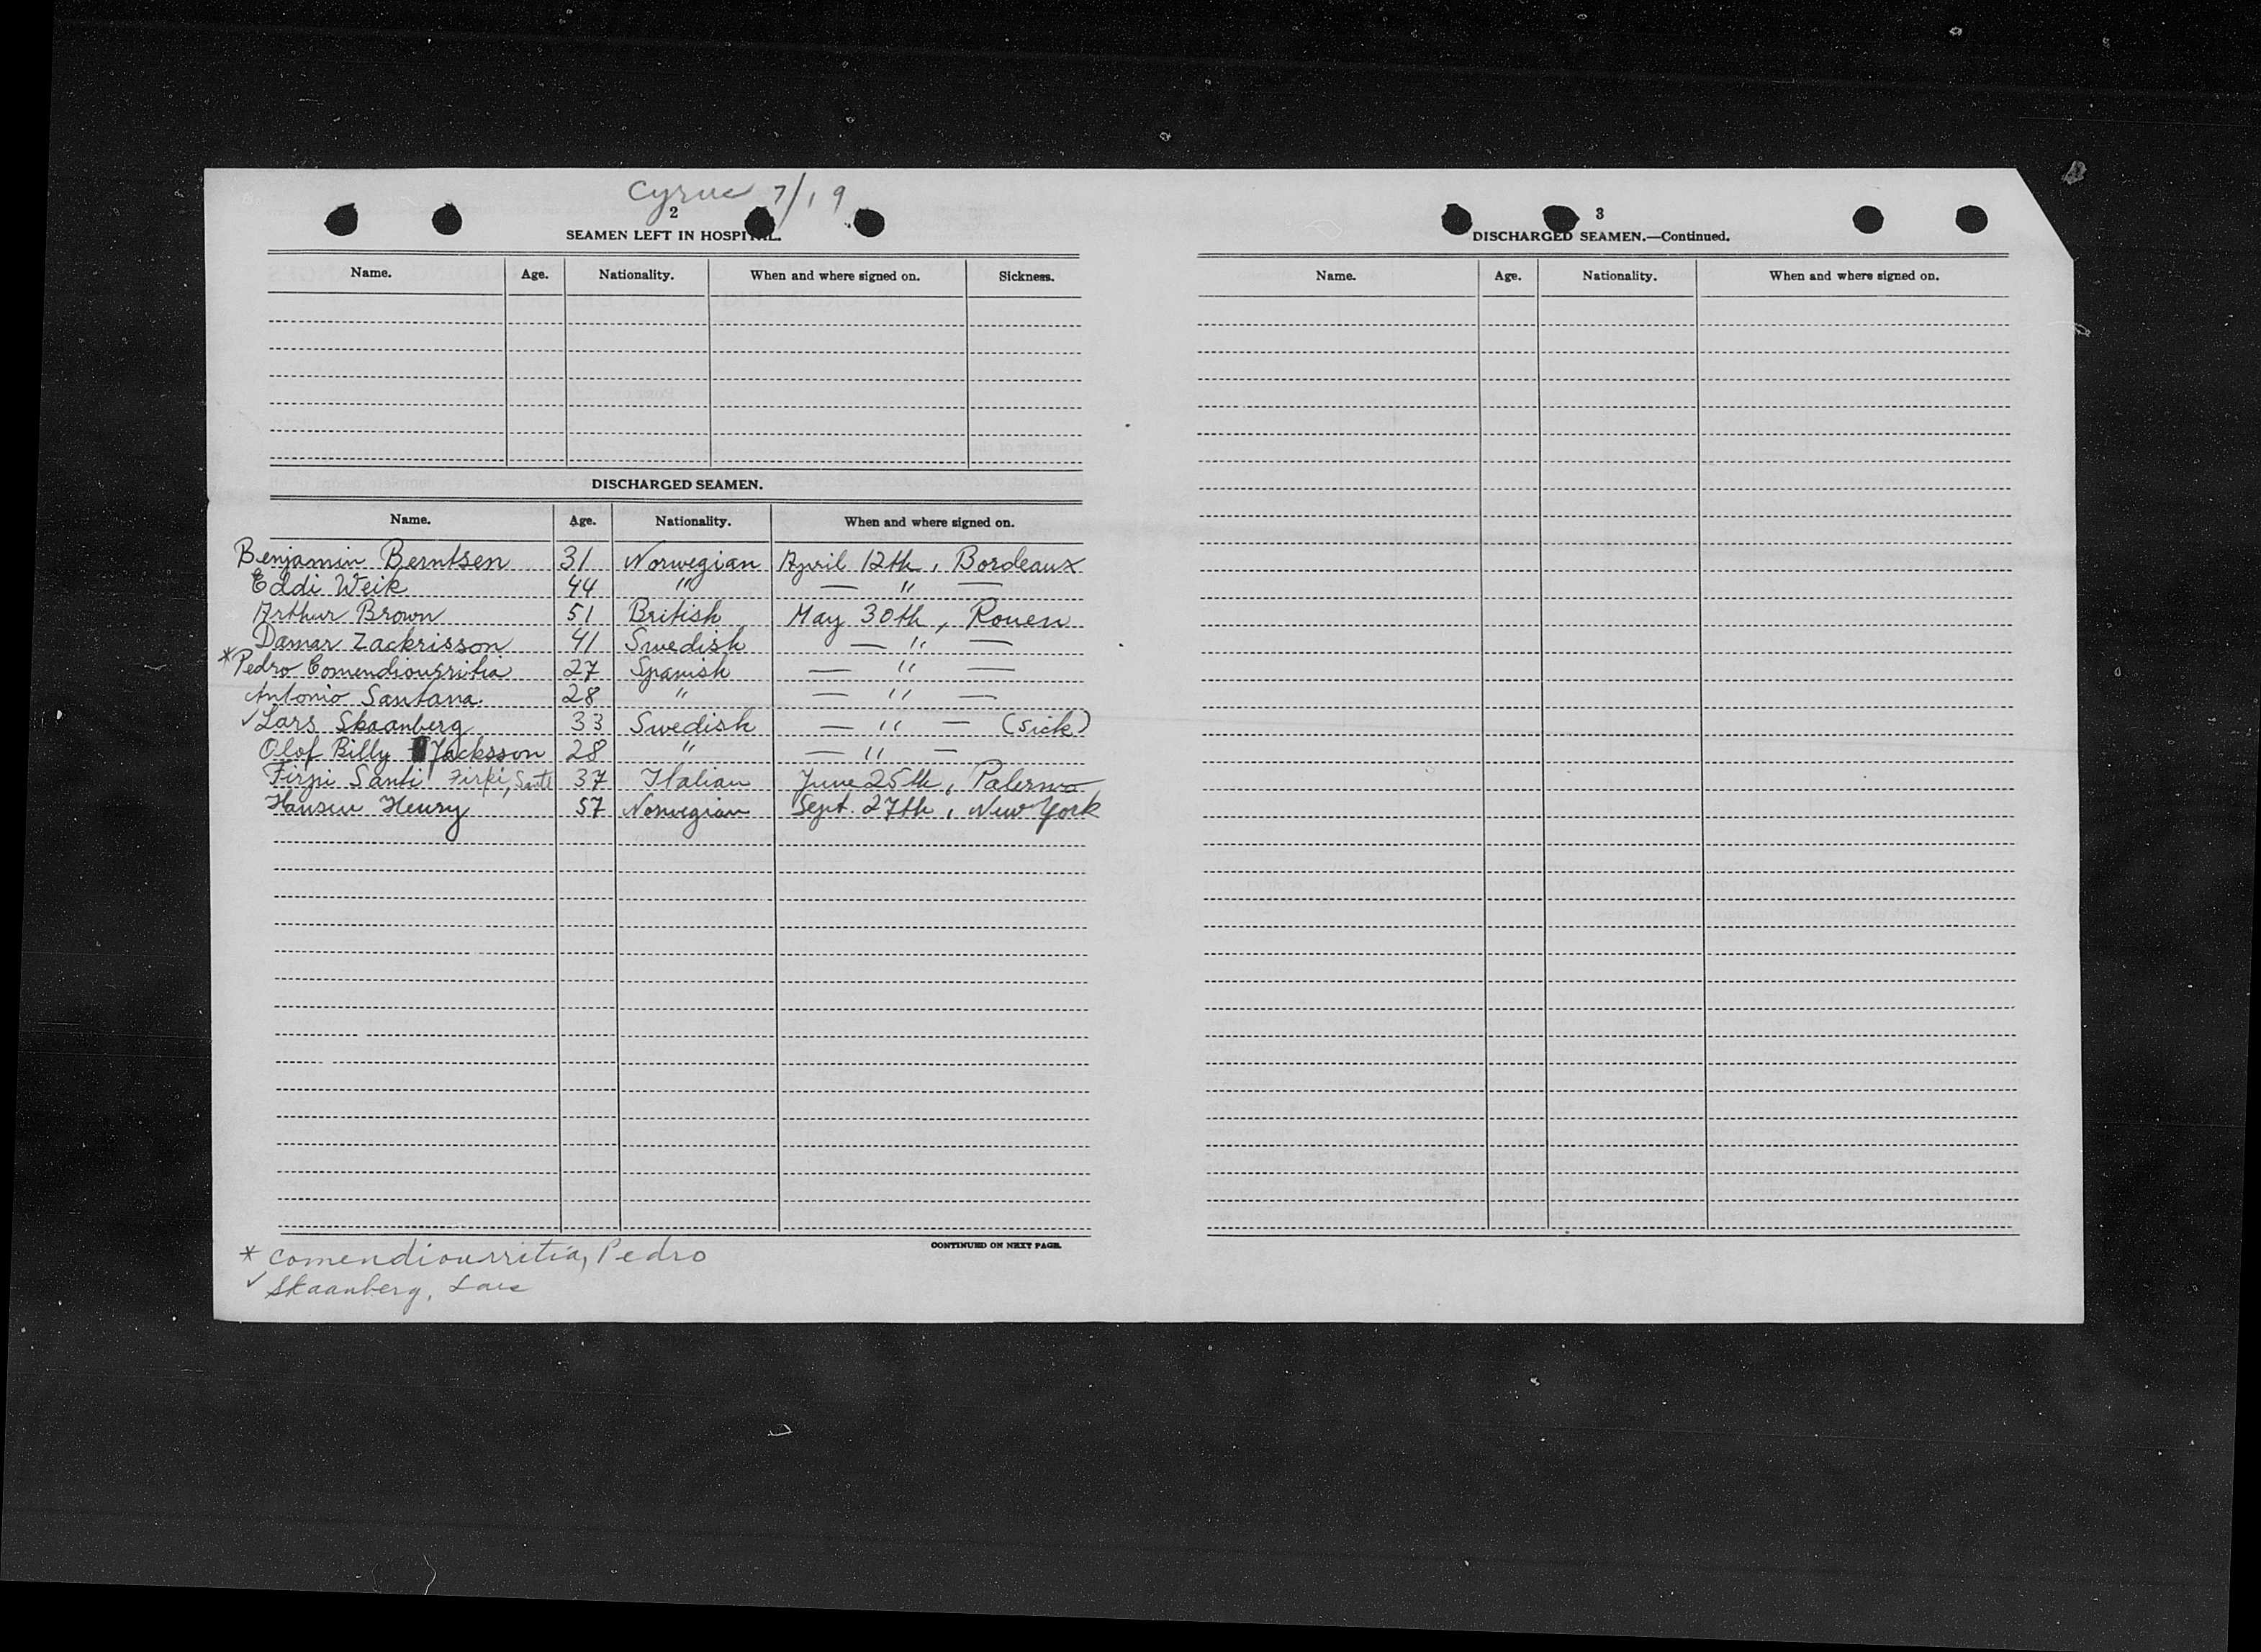 Cyrus 7/19
2
SEAMEN LEFT IN HOSPITAL.
Name. Age. Nationality. When and where signed on. Sickness.
DISCHARGED SEAMEN.
Name. Age. Nationality. When and where signed on.
Benjamin Berntsen 31 Norwegian April 12th, Bordeaux
Eddi Weik 44 " — " —
Arthur Brown 51 British May 30th, Rouen
Damar Zackrisson 41 Swedish — " —
*Pedro Comendiourritia 27 Spanish — " —
Antonio Santana 28 " — " —
✓Lars Skaanberg 33 Swedish — " — (Sick)
Olof Billy Jacksson 28 " — " —
Firpi Santi Firpi, Santi 37 Italian June 25th, Palermo
Hansen Henry 57 Norwegian Sept. 27th, New York
CONTINUED ON NEXT PAGE.
* Comendiourritia, Pedro
✓ Skaanberg, Lars
3
DISCHARGED SEAMEN.—Continued.
Name. Age. Nationality. When and where signed on.